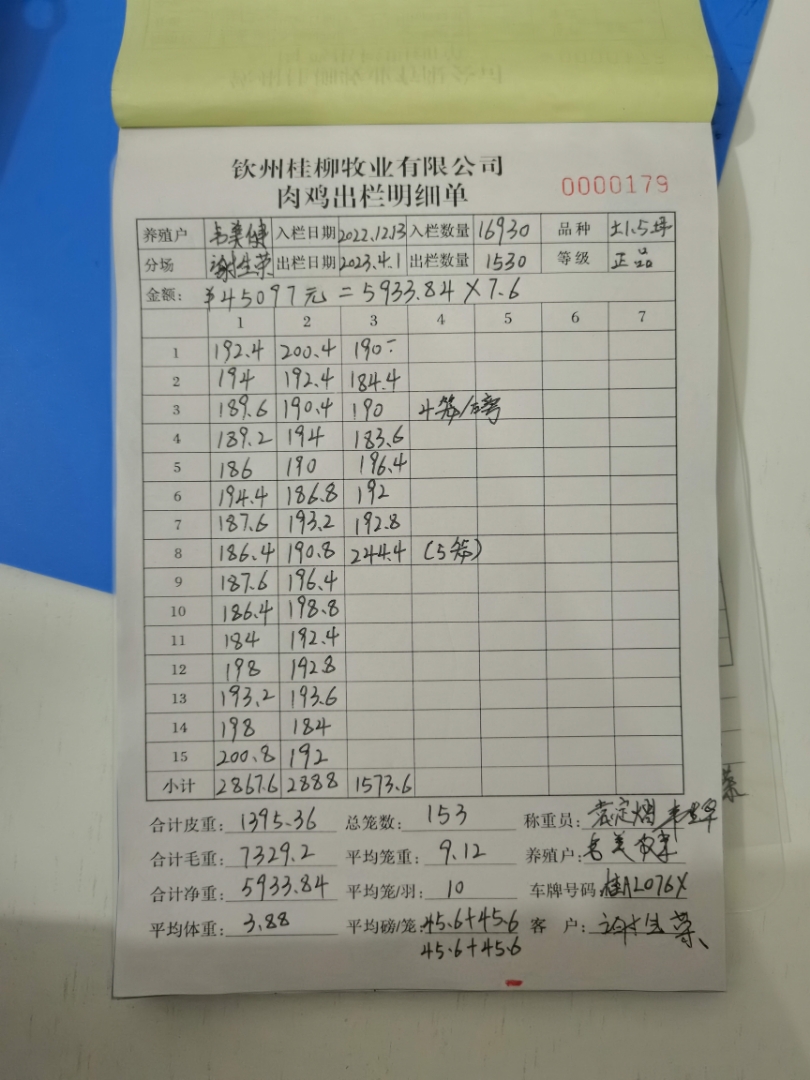 钦州桂柳牧业有限公司
肉鸡出栏明细单
0000179
养殖户 韦美健 入栏日期 2022.12.13 入栏数量 16930 品种 土1.5坪
分场 谢生荣 出栏日期 2023.4.1 出栏数量 1530 等级 正品
金额: ¥45097元=5933.84×7.6
1 2 3 4 5 6 7
1 192.4 200.4 190-
2 194 192.4 184.4
3 189.6 190.4 190 4笼/磅
4 189.2 194 183.6
5 186 190 196.4
6 194.4 186.8 192
7 187.6 193.2 192.8
8 186.4 190.8 244.4 (5笼)
9 187.6 196.4
10 186.4 198.8
11 184 192.4
12 198 192.8
13 193.2 193.6
14 198 184
15 200.8 192
小计 2867.6 2888 1573.6
合计皮重: 1395.36 总笼数: 153 称重员:
合计毛重: 7329.2 平均笼重: 9.12 养殖户: 韦美
合计净重: 5933.84 平均笼/羽: 10 车牌号码: 桂A2076X
平均体重: 3.88 平均磅/笼: 45.6+45.6 客户: 谢生荣
45.6+45.6